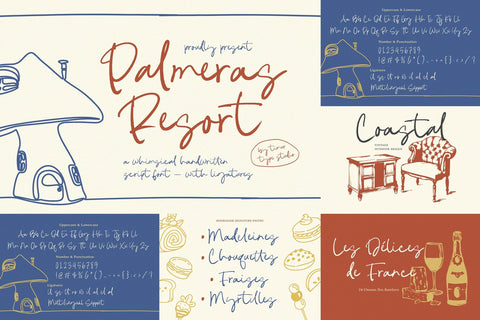 proudly present
Palmeras
Resort
a whimsical handwritten
script font — with ligatures
by tiara
type studio
Uppercase & Lowercase
Aa Bb Cc Dd Ee Ff Gg Hh Ii Jj Kk Ll
Mm Nn Oo Pp Qq Rr Ss Tt Uu Vv Ww Xx Yy Zz
Number & Punctuation
0123456789
Ligatures
Multilingual Support
Coastal
VINTAGE
INTERIOR DESIGN
Uppercase & Lowercase
Aa Bb Cc Dd Ee Ff Gg Hh Ii Jj Kk Ll
Mm Nn Oo Pp Qq Rr Ss Tt Uu Vv Ww Xx Yy Zz
Number & Punctuation
0123456789
Ligatures
Multilingual Support
HOMEMADE SIGNATURE PASTRY
• Madeleines
• Chouquettes
• Fraises
• Myrtilles
Les Délices
de France